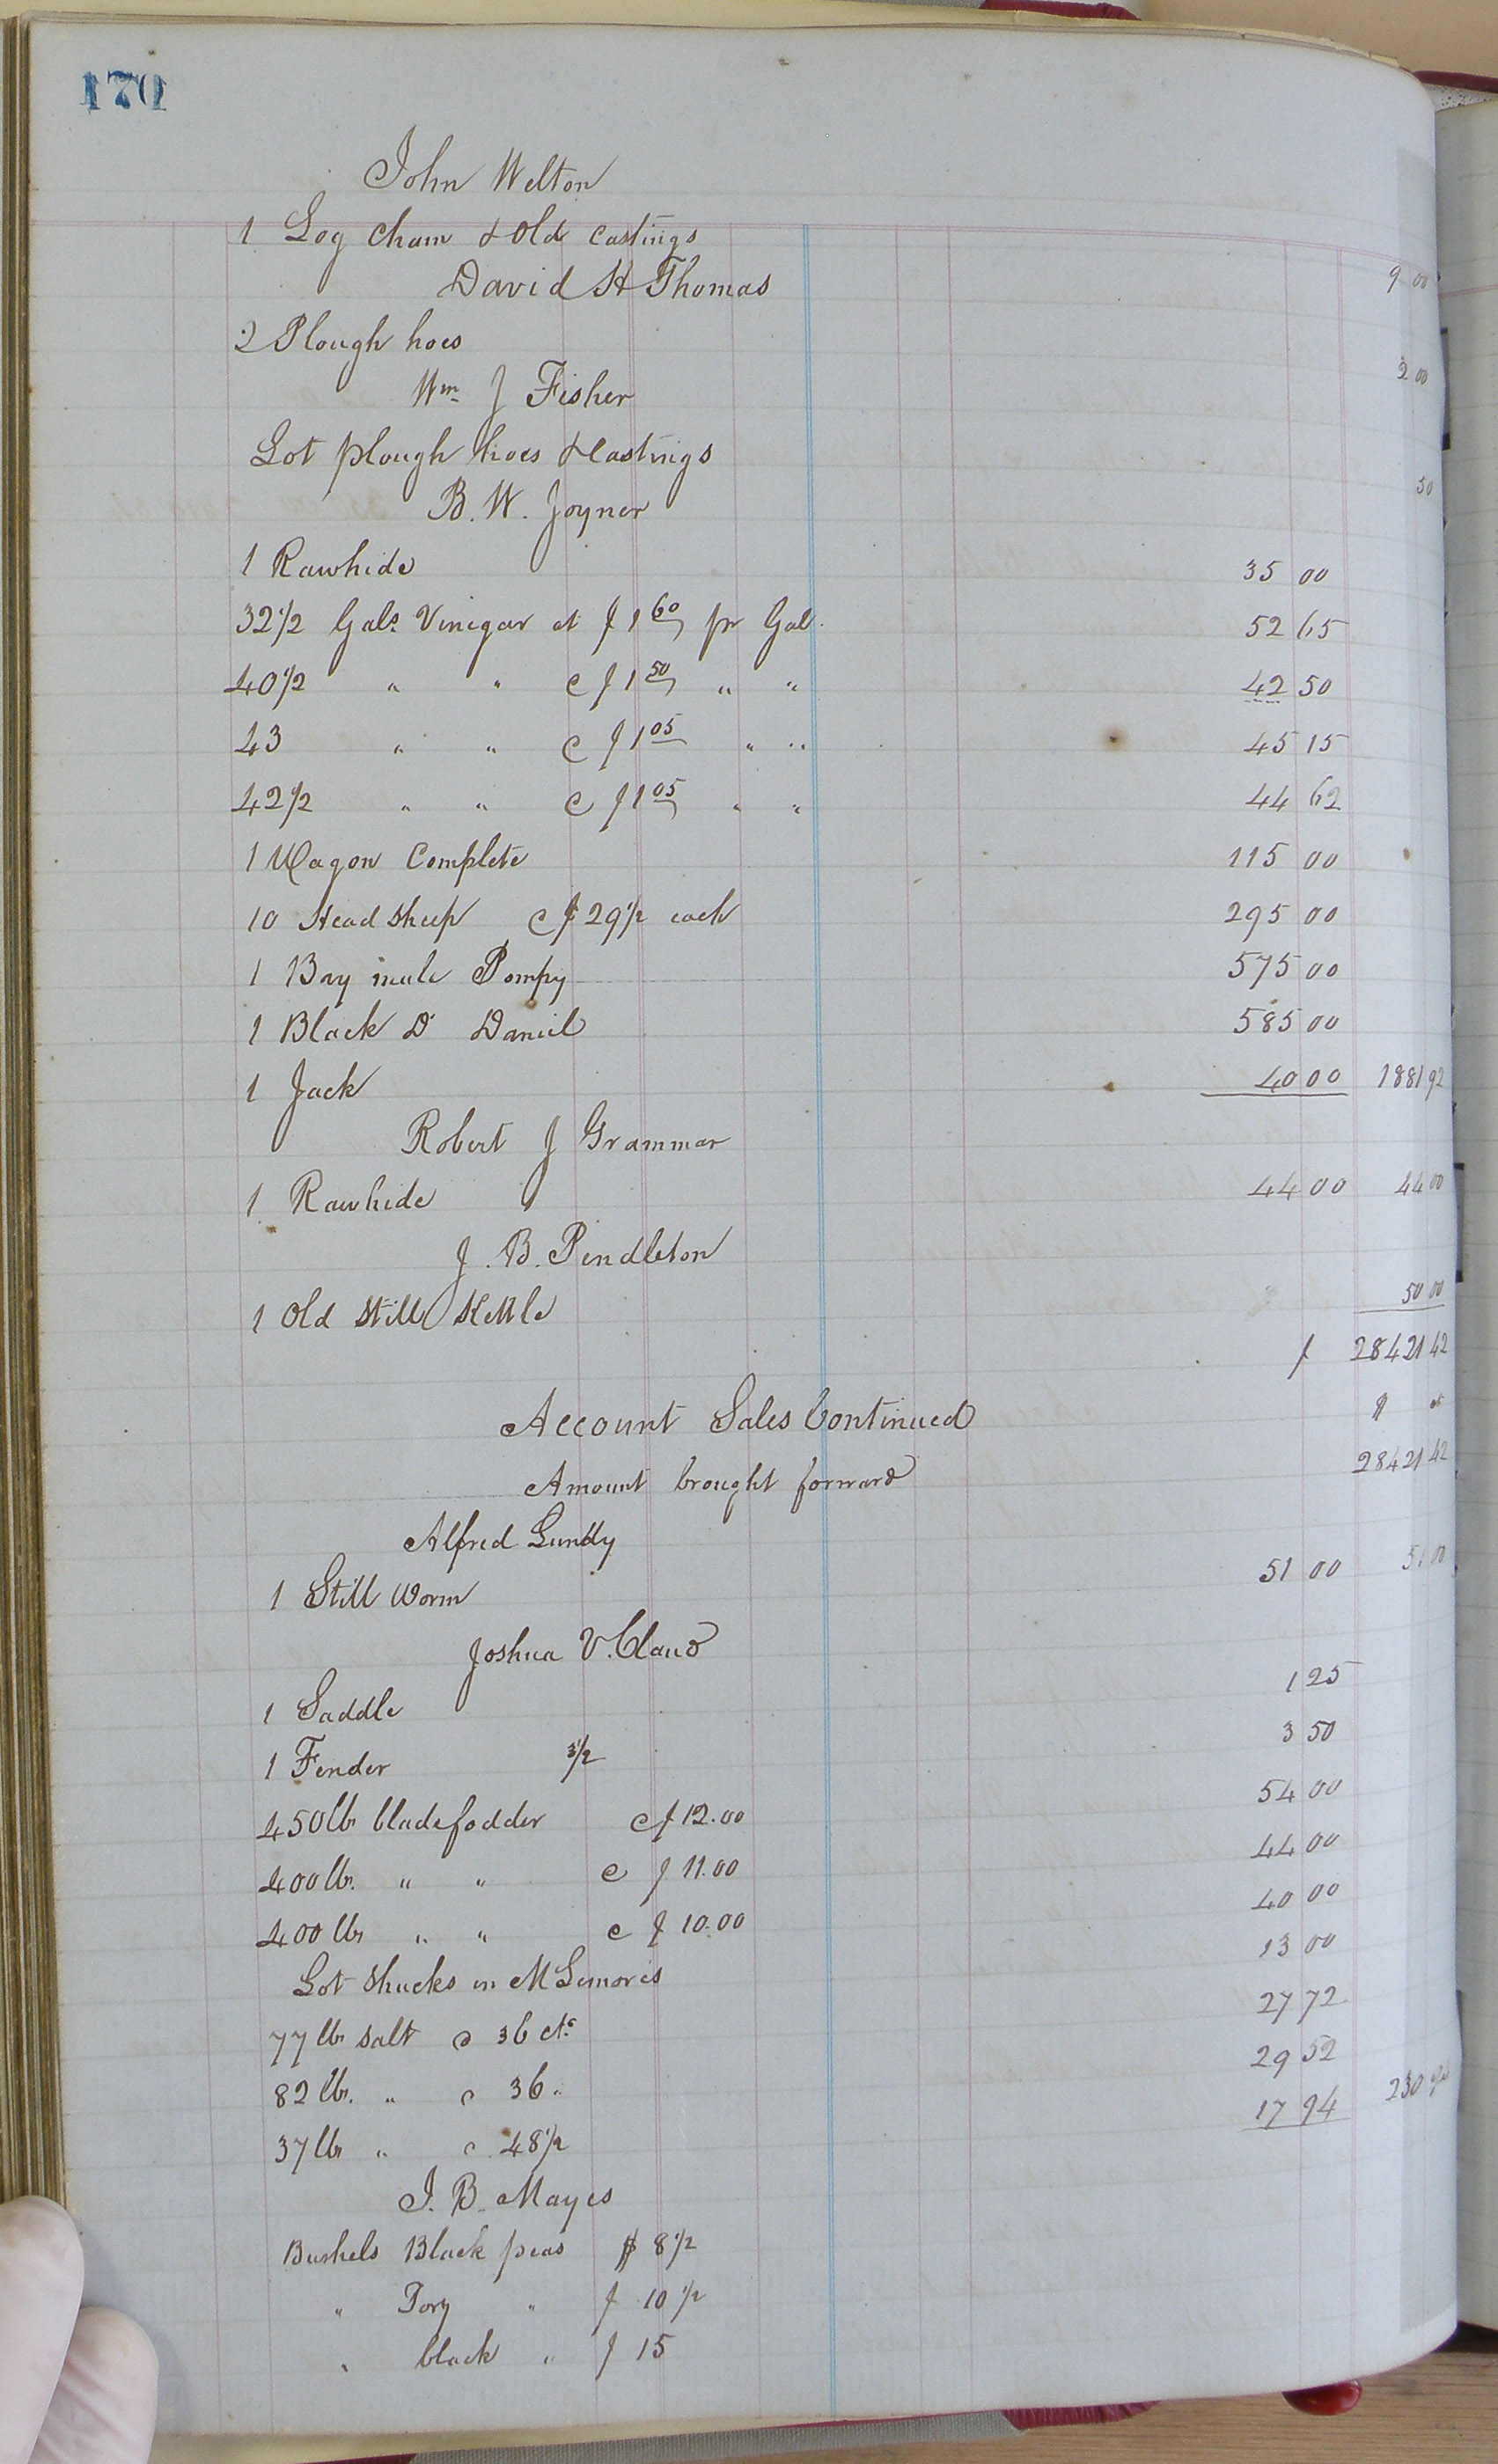 170
John Welton
1 Log Chain & Old Castings 9 00
David H Thomas
2 Plough hoes 2 00
Wm J Fisher
Lot plough hoes & Castings 50
B. W. Joyner
1 Rawhide 35 00
32 1/2 Gals. Vinegar at $ 1 60 pr Gal. 52 65
40 1/2 " " @ $ 1 50 " " 42 50
43 " " @ $ 1 05 " " 45 15
42 1/2 " " @ $ 1 05 " " 44 62
1 Wagon Complete 115 00
10 Head Sheep @ $ 29 1/2 each 295 00
1 Bay mule Pompy 575 00
1 Black Do Daniel 585 00
1 Jack 40 00 1881 92
Robert J Grammar
1 Rawhide 44 00 44 00
J. B. Pendleton
1 Old Still Kettle 50 00
$ 28421 42
Account Sales Continued $
Amount brought forward 28421 42
Alfred Lundy
1 Still Worm 51 00 51 00
Joshua V. Claud
1 Saddle 1 25
1 Fender 3 1/2 3 50
450 lbs blade fodder @ $ 12.00 54 00
400 lbs. " " @ $ 11.00 44 00
400 lbs " " @ $ 10.00 40 00
Lot Shucks in McLemores 13 00
77 lbs Salt @ 36 cts 27 72
82 lbs. " @ 36 " 29 52
37 lbs " @ 48 1/2 17 94 230
J. B. Mayes
Bushels Black peas $ 8 1/2
" Tory " $ 10 1/2
" black " $ 15